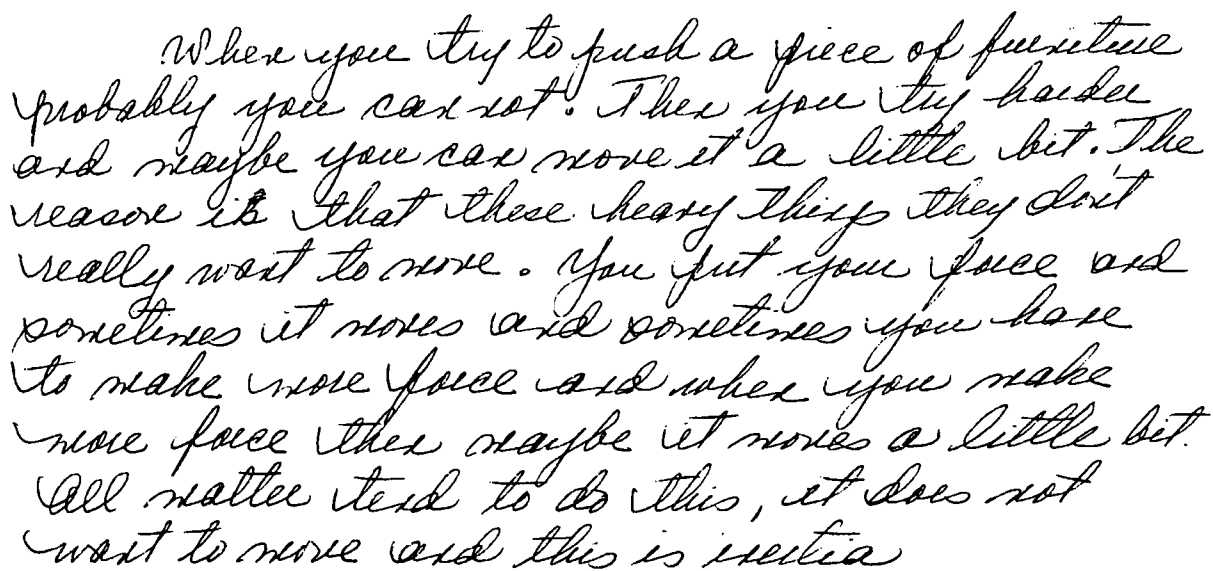 When you try to push a piece of furniture
probably you can not. Then you try harder
and maybe you can move it a little bit. The
reason is that these heavy things they don't
really want to move. You put your force and
sometimes it moves and sometimes you have
to make more force and when you make
more force then maybe it moves a little bit.
All matter tend to do this, it does not
want to move and this is inertia